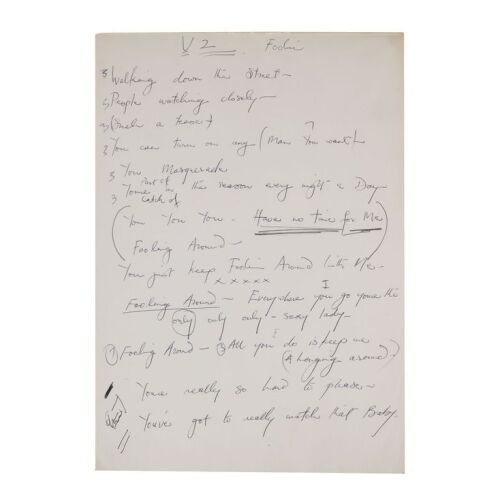 V2 Foolin
3 Walking down the Street -
3 People watching closely -
3 (Such a tease)
3 You can turn on any (Man You want) -
3 You Masquerade
Part of
3 Youre in the reason every night & Day -
Catch of
(You You You - Have no time for Me
Fooling Around -
You just keep Foolin Around With Me -
x x x x x I
Fooling Around - Everywhere you go youre the
only only only - sexy lady -
① Fooling Around - ② All you do is keep me
(A hanging around)
Youre really so hard to please -
You've got to really watch that Baby.